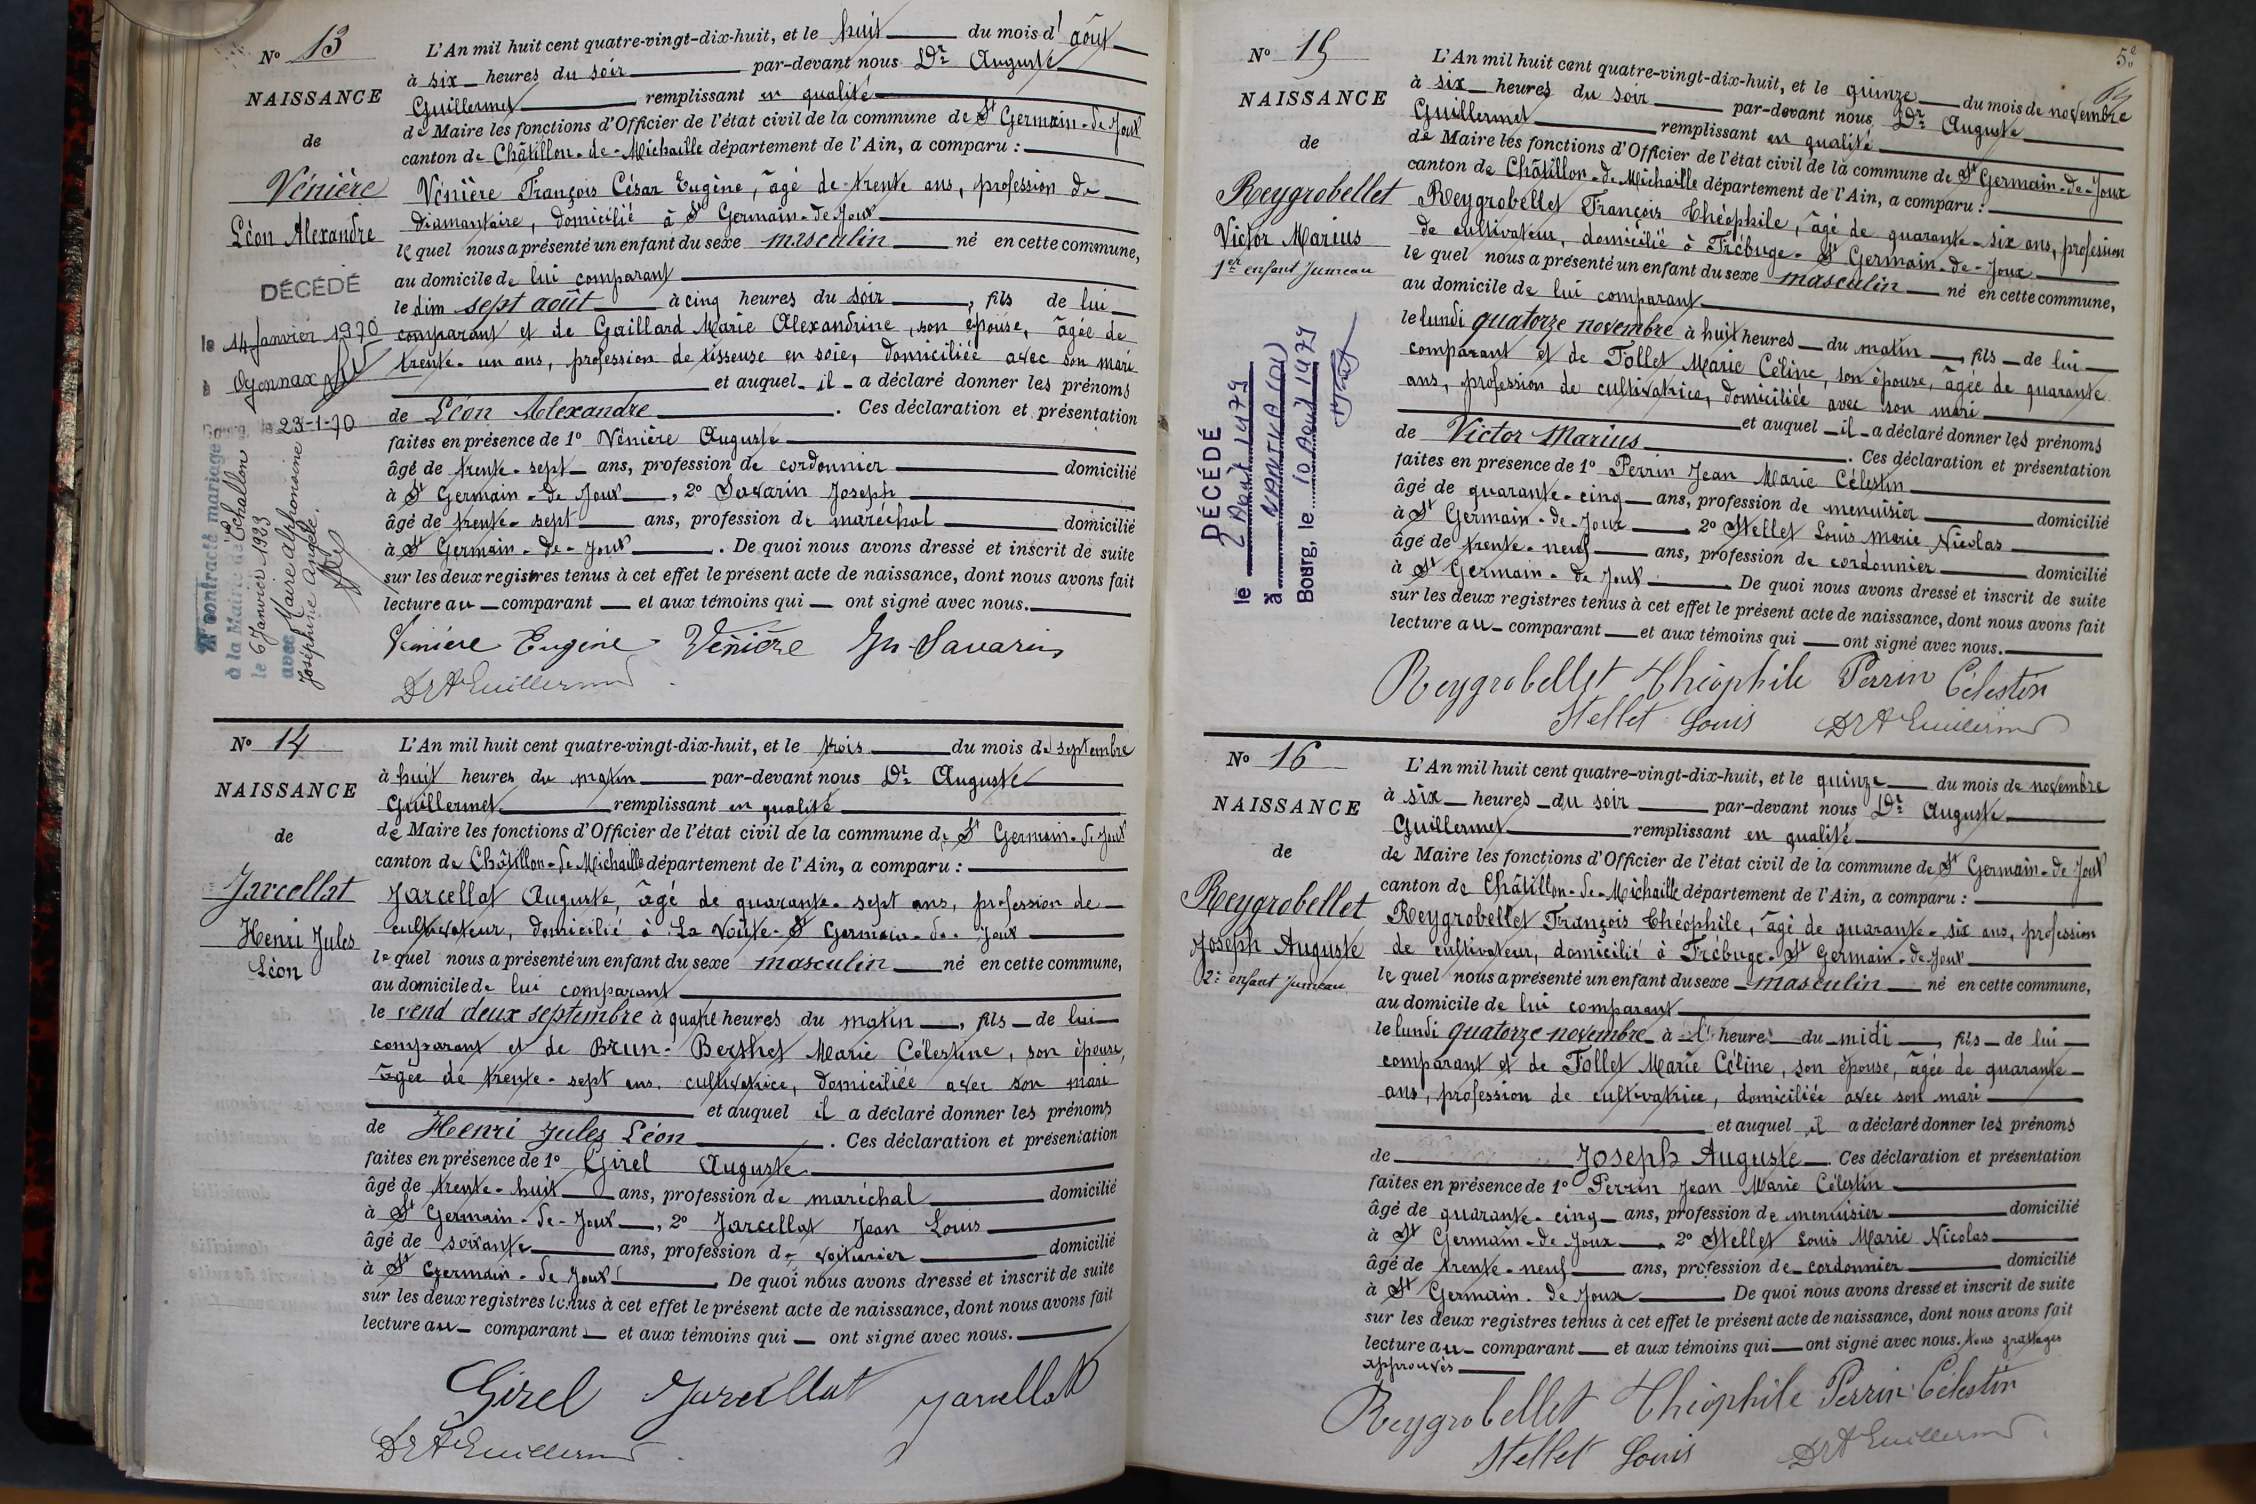 N° 13
NAISSANCE
de
Vénière
Léon Alexandre
DÉCÉDÉ
le 14 Janvier 1970
à Oyonnax
Bourg, le 23-1-70
A contracté mariage
à la Mairie de Echallon
le 6 Janvier 1923
avec Maire Alphonsine
Joséphine Angèle.
L'An mil huit cent quatre-vingt-dix-huit, et le huit du mois d'août
à six heures du soir par-devant nous Dr Auguste
Guillermet remplissant en qualité
de Maire les fonctions d'Officier de l'état civil de la commune de St Germain-de-Joux
canton de Châtillon-de-Michaille département de l'Ain, a comparu :
Vénière François César Eugène, âgé de trente ans, profession de
diamantaire, domicilié à St Germain-de-Joux
lequel nous a présenté un enfant du sexe masculin né en cette commune,
au domicile de lui comparant
le dim sept août à cinq heures du soir, fils de lui
comparant et de Gaillard Marie Alexandrine, son épouse, âgée de
trente-un ans, profession de tisseuse en soie, domiciliée avec son mari
et auquel il a déclaré donner les prénoms
de Léon Alexandre. Ces déclaration et présentation
faites en présence de 1° Vénière Auguste
âgé de trente-sept ans, profession de cordonnier domicilié
à St Germain-de Joux, 2° Savarin Joseph
âgé de trente-sept ans, profession de maréchal domicilié
à St Germain-de-Joux. De quoi nous avons dressé et inscrit de suite
sur les deux registres tenus à cet effet le présent acte de naissance, dont nous avons fait
lecture au comparant et aux témoins qui ont signé avec nous.
Vénière Eugène Vénière Jh Savarin
Dr A Guillermet
N° 14
NAISSANCE
de
Jarcellat
Henri Jules
Léon
L'An mil huit cent quatre-vingt-dix-huit, et le trois du mois de septembre
à huit heures du matin par-devant nous Dr Auguste
Guillermet remplissant en qualité
de Maire les fonctions d'Officier de l'état civil de la commune de St Germain-de Joux
canton de Châtillon-de Michaille département de l'Ain, a comparu :
Jarcellat Auguste, âgé de quarante-sept ans, profession de
cultivateur, domicilié à La Voûte-St Germain-de-Joux
lequel nous a présenté un enfant du sexe masculin né en cette commune,
au domicile de lui comparant
le vend deux septembre à quatre heures du matin, fils de lui
comparant et de Brun-Berthet Marie Célestine, son épouse,
âgée de trente-sept ans, cultivatrice, domiciliée avec son mari
et auquel il a déclaré donner les prénoms
de Henri Jules Léon. Ces déclaration et présentation
faites en présence de 1° Girel Auguste
âgé de trente-huit ans, profession de maréchal domicilié
à St Germain-de-Joux, 2° Jarcellat Jean Louis
âgé de soixante ans, profession de voiturier domicilié
à St Germain-de Joux. De quoi nous avons dressé et inscrit de suite
sur les deux registres tenus à cet effet le présent acte de naissance, dont nous avons fait
lecture au comparant et aux témoins qui ont signé avec nous.
Girel Jarcellat Jarcellat
Dr A Guillermet
5.
N° 15
NAISSANCE
de
Reygrobellet
Victor Marius
1er enfant Jumeau
DÉCÉDÉ
le 2 Août 1979
à NANTUA (01)
Bourg, le 10 Août 1979
L'An mil huit cent quatre-vingt-dix-huit, et le quinze du mois de novembre
à six heures du soir par-devant nous Dr Auguste
Guillermet remplissant en qualité
de Maire les fonctions d'Officier de l'état civil de la commune de St Germain-de-Joux
canton de Châtillon-de Michaille département de l'Ain, a comparu :
Reygrobellet François Théophile, âgé de quarante-six ans, profession
de cultivateur, domicilié à Trébuge-St Germain-de-Joux
lequel nous a présenté un enfant du sexe masculin né en cette commune,
au domicile de lui comparant
le lundi quatorze novembre à huit heures du matin, fils de lui
comparant et de Tollet Marie Céline, son épouse, âgée de quarante
ans, profession de cultivatrice, domiciliée avec son mari
et auquel il a déclaré donner les prénoms
de Victor Marius. Ces déclaration et présentation
faites en présence de 1° Perrin Jean Marie Célestin
âgé de quarante-cinq ans, profession de menuisier domicilié
à St Germain-de-Joux 2° Stellet Louis Marie Nicolas
âgé de trente-neuf ans, profession de cordonnier domicilié
à St Germain-de Joux. De quoi nous avons dressé et inscrit de suite
sur les deux registres tenus à cet effet le présent acte de naissance, dont nous avons fait
lecture au comparant et aux témoins qui ont signé avec nous.
Reygrobellet Théophile Perrin Célestin
Stellet Louis Dr A Guillermet
N° 16
NAISSANCE
de
Reygrobellet
Joseph Auguste
2e enfant Jumeau
L'An mil huit cent quatre-vingt-dix-huit, et le quinze du mois de novembre
à six heures du soir par-devant nous Dr Auguste
Guillermet remplissant en qualité
de Maire les fonctions d'Officier de l'état civil de la commune de St Germain-de Joux
canton de Châtillon-de-Michaille département de l'Ain, a comparu :
Reygrobellet François Théophile, âgé de quarante-six ans, profession
de cultivateur, domicilié à Trébuge-St Germain-de Joux
lequel nous a présenté un enfant du sexe masculin né en cette commune,
au domicile de lui comparant
le lundi quatorze novembre à heure du midi, fils de lui
comparant et de Tollet Marie Céline, son épouse, âgée de quarante
ans, profession de cultivatrice, domiciliée avec son mari
et auquel il a déclaré donner les prénoms
de Joseph Auguste. Ces déclaration et présentation
faites en présence de 1° Perrin Jean Marie Célestin
âgé de quarante-cinq ans, profession de menuisier domicilié
à St Germain-de Joux. 2° Stellet Louis Marie Nicolas
âgé de trente-neuf ans, profession de cordonnier domicilié
à St Germain-de Joux De quoi nous avons dressé et inscrit de suite
sur les deux registres tenus à cet effet le présent acte de naissance, dont nous avons fait
lecture au comparant et aux témoins qui ont signé avec nous. tous grattages
approuvés
Reygrobellet Théophile Perrin Célestin
Stellet Louis Dr A Guillermet